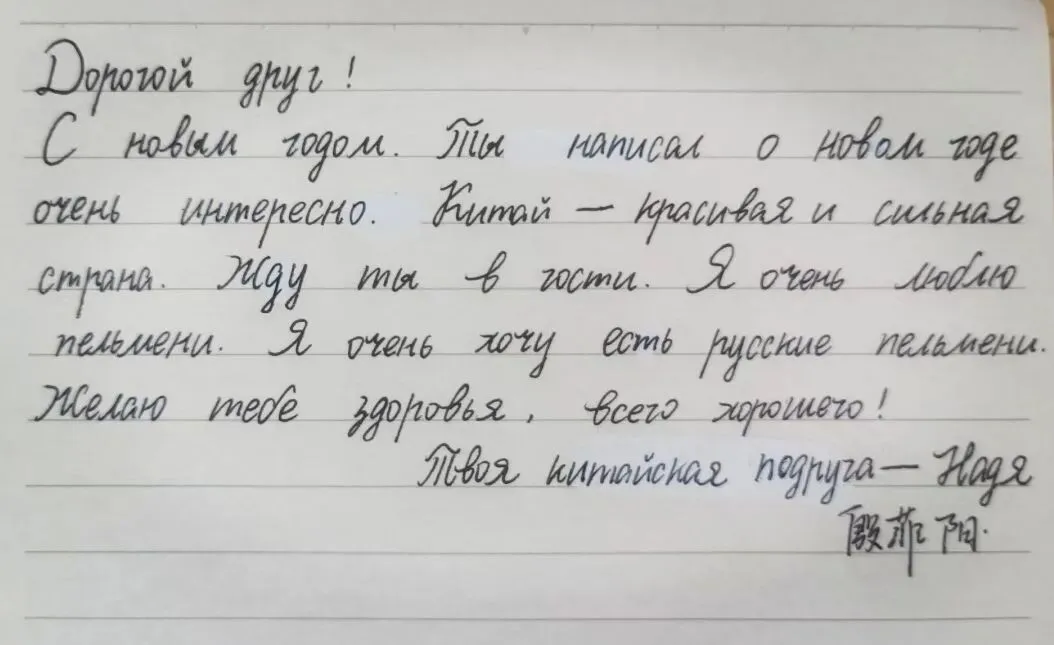 Дорогой друг!
С новым годом. Ты написал о новом годе
очень интересно. Китай — красивая и сильная
страна. Жду ты в гости. Я очень люблю
пельмени. Я очень хочу есть русские пельмени.
Желаю тебе здоровья, всего хорошего!
Твоя китайская подруга — Надя
殷菲阳.